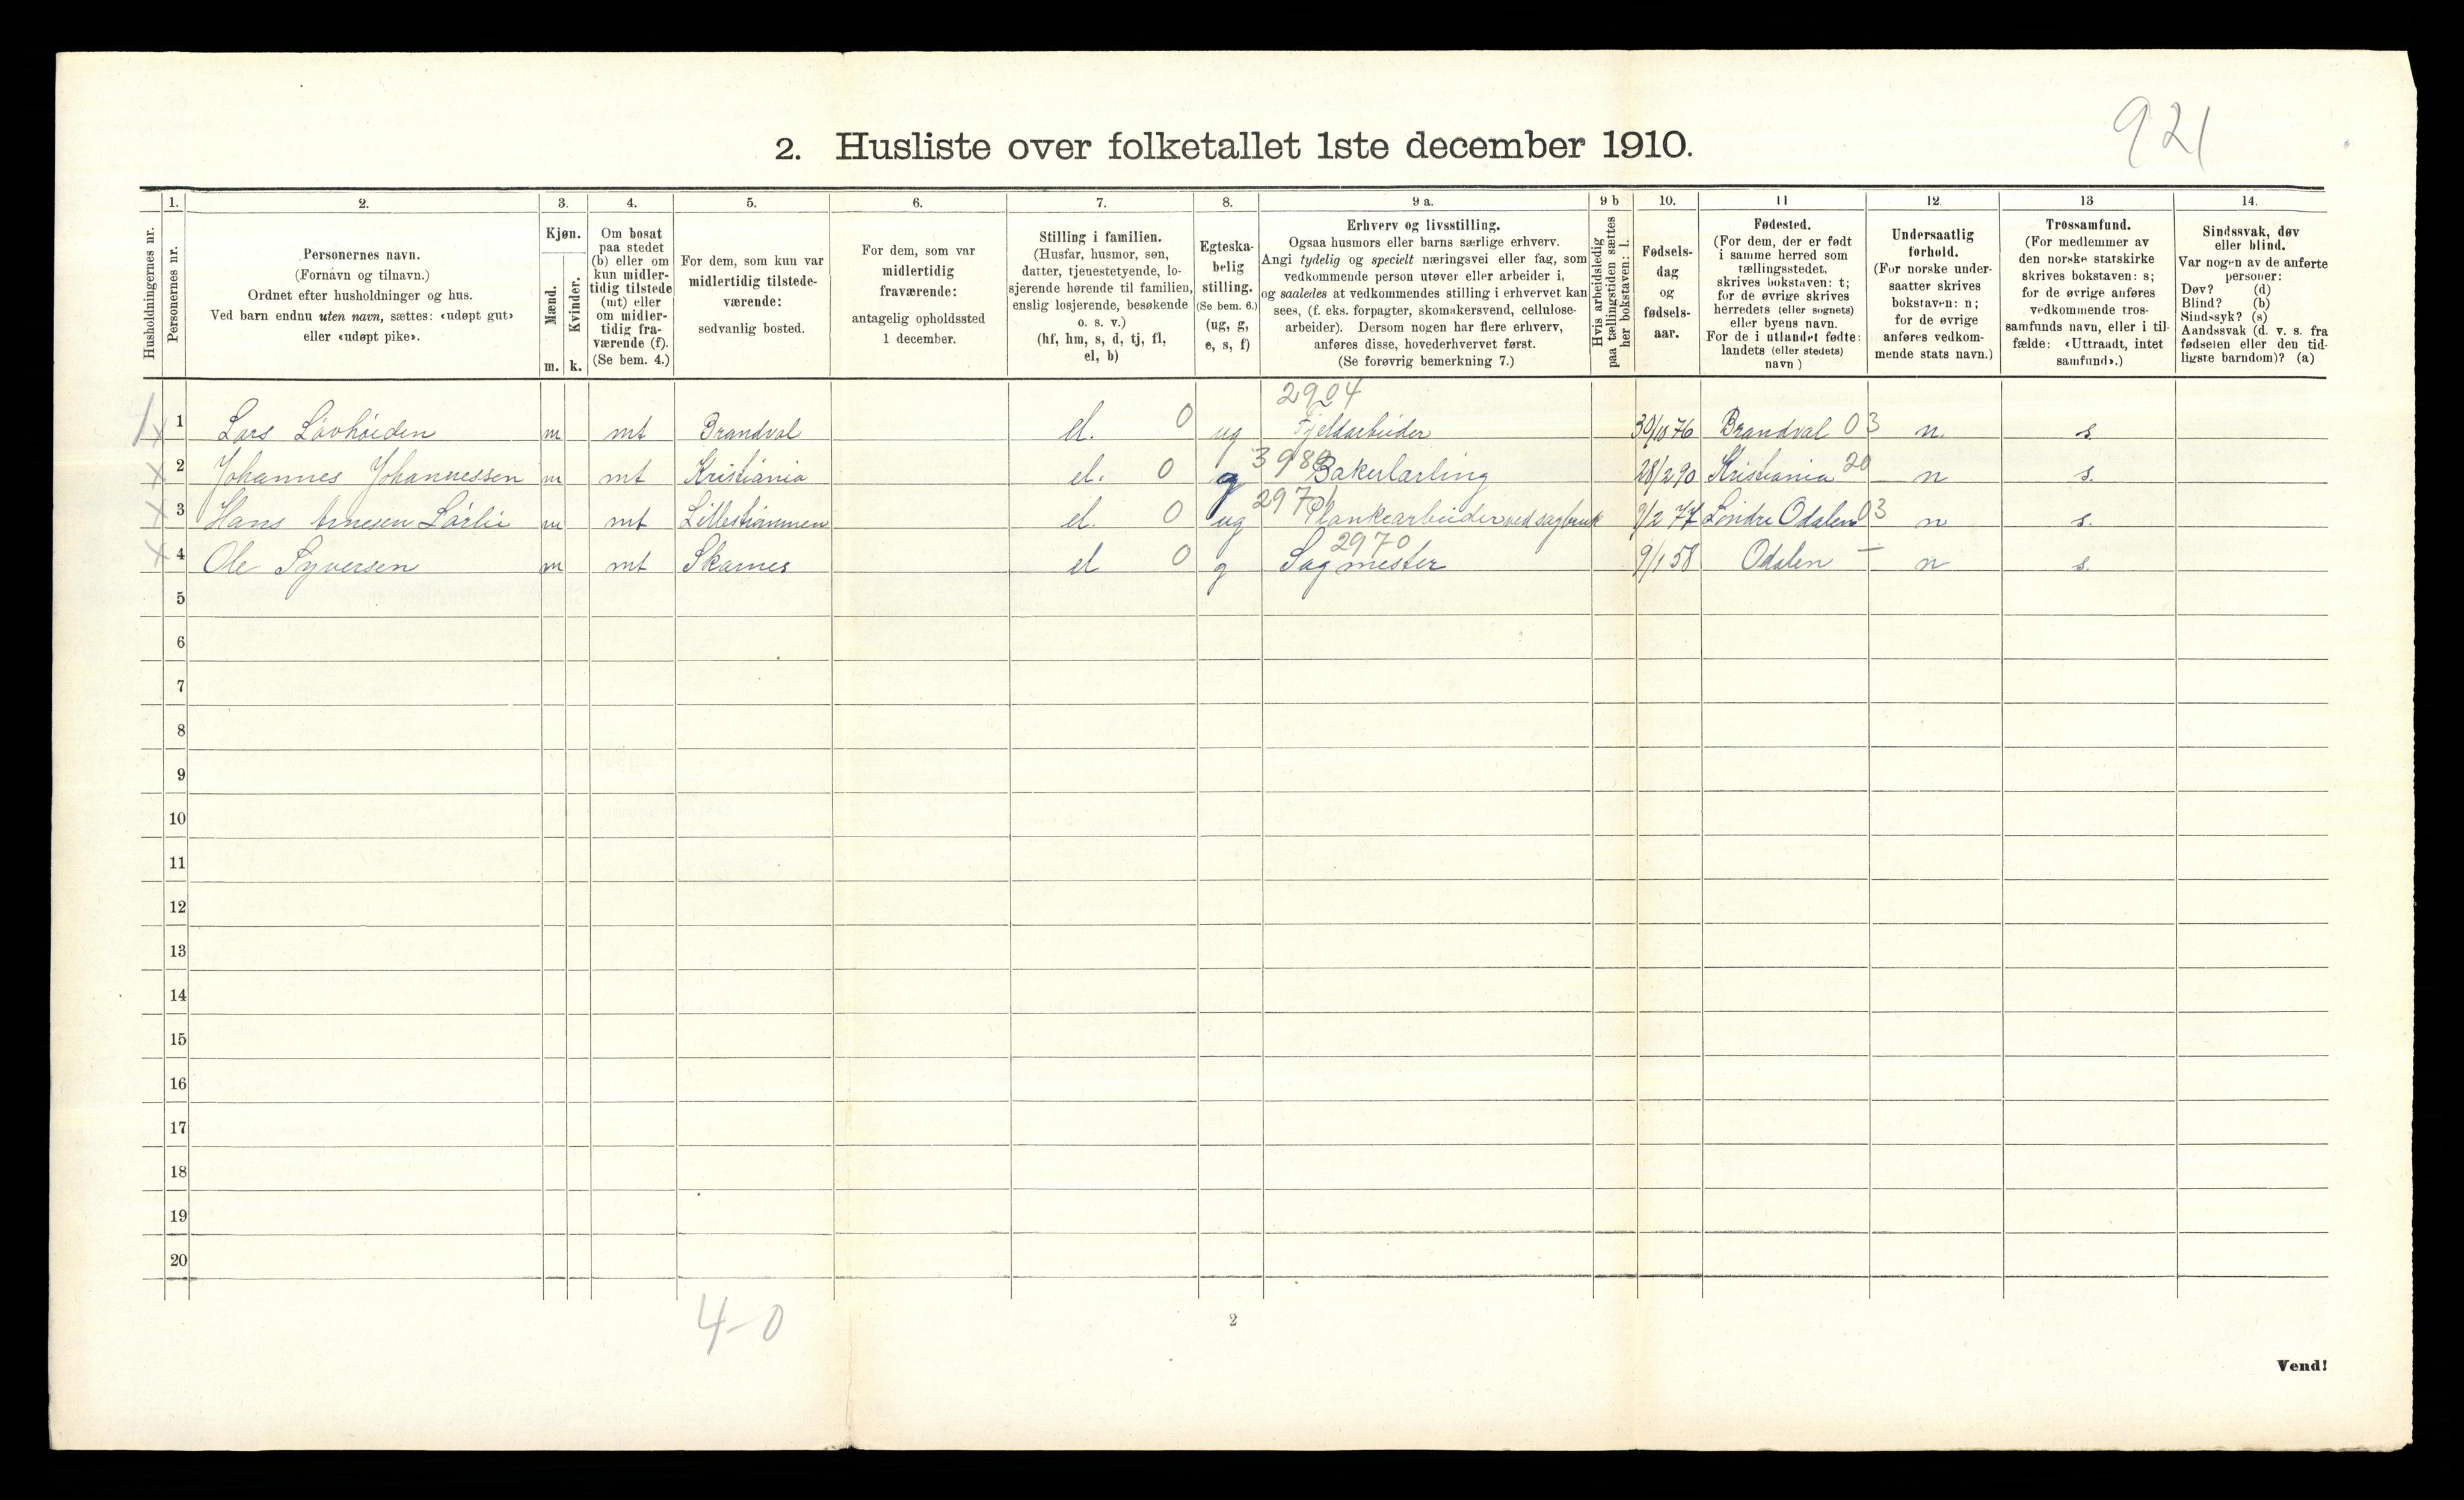 921
2. Husliste over folketallet 1ste december 1910.
1. 2. 3. 4. 5. 6. 7. 8. 9 a. 9 b 10. 11 12. 13 14.
Husholdningernes nr.
Personernes nr.
Personernes navn.
(Fornavn og tilnavn.)
Ordnet efter husholdninger og hus.
Ved barn endnu uten navn, sættes: «udøpt gut»
eller «udøpt pike».
Kjøn.
Mænd.
Kvinder.
m. k.
Om bosat
paa stedet
(b) eller om
kun midler-
tidig tilstede
(mt) eller
om midler-
tidig fra-
værende (f).
(Se bem. 4.)
For dem, som kun var
midlertidig tilstede-
værende:
sedvanlig bosted.
For dem, som var
midlertidig
fraværende:
antagelig opholdssted
1 december.
Stilling i familien.
(Husfar, husmor, søn,
datter, tjenestetyende, lo-
sjerende hørende til familien,
enslig losjerende, besøkende
o. s. v.)
(hf, hm, s, d, tj, fl,
el, b)
Egteska-
belig
stilling.
(Se bem. 6.)
(ug, g,
e, s, f)
Erhverv og livsstilling.
Ogsaa husmors eller barns særlige erhverv.
Angi tydelig og specielt næringsvei eller fag, som
vedkommende person utøver eller arbeider i,
og saaledes at vedkommendes stilling i erhvervet kan
sees, (f. eks. forpagter, skomakersvend, cellulose-
arbeider). Dersom nogen har flere erhverv,
anføres disse, hovederhvervet først.
(Se forøvrig bemerkning 7.)
Hvis arbeidsledig
paa tællingstiden sættes
her bokstaven: l.
Fødsels-
dag
og
fødsels-
aar.
Fødested.
(For dem, der er født
i samme herred som
tællingsstedet,
skrives bokstaven: t;
for de øvrige skrives
herredets (eller sognets)
eller byens navn.
For de i utlandet fødte:
landets (eller stedets)
navn)
Undersaatlig
forhold.
(For norske under-
saatter skrives
bokstaven: n;
for de øvrige
anføres vedkom-
mende stats navn.)
Trossamfund.
(For medlemmer av
den norske statskirke
skrives bokstaven: s;
for de øvrige anføres
vedkommende tros-
samfunds navn, eller i til-
fælde: «Uttraadt, intet
samfund».)
Sindssvak, døv
eller blind.
Var nogen av de anførte
personer:
Døv? (d)
Blind? (b)
Sindssyk? (s)
Aandssvak (d. v. s. fra
fødselen eller den tid-
ligste barndom)? (a)
2904
1 x 1 Lars Løvhøiden m mt Brandval el. 0 ug Fjeldarbeider 30/10 76 Brandval 03 n. s.
x 2 Johannes Johannessen m mt Kristiania el. 0 g 3980 Bakerlærling 28/2 90 Kristiania 20 n s.
x 3 Hans Arnesen Lørlie m mt Lillestrømmen el. 0 ug 2971 Plankearbeider ved sagbruk 9/2 77 Søndre Odalen 03 n s.
2970
x 4 Ole Syversen m mt Skarnes el 0 g Sagmester 9/1 58 Odalen – n s.
5
6
7
8
9
10
11
12
13
14
15
16
17
18
19
20
4-0
2
Vend!